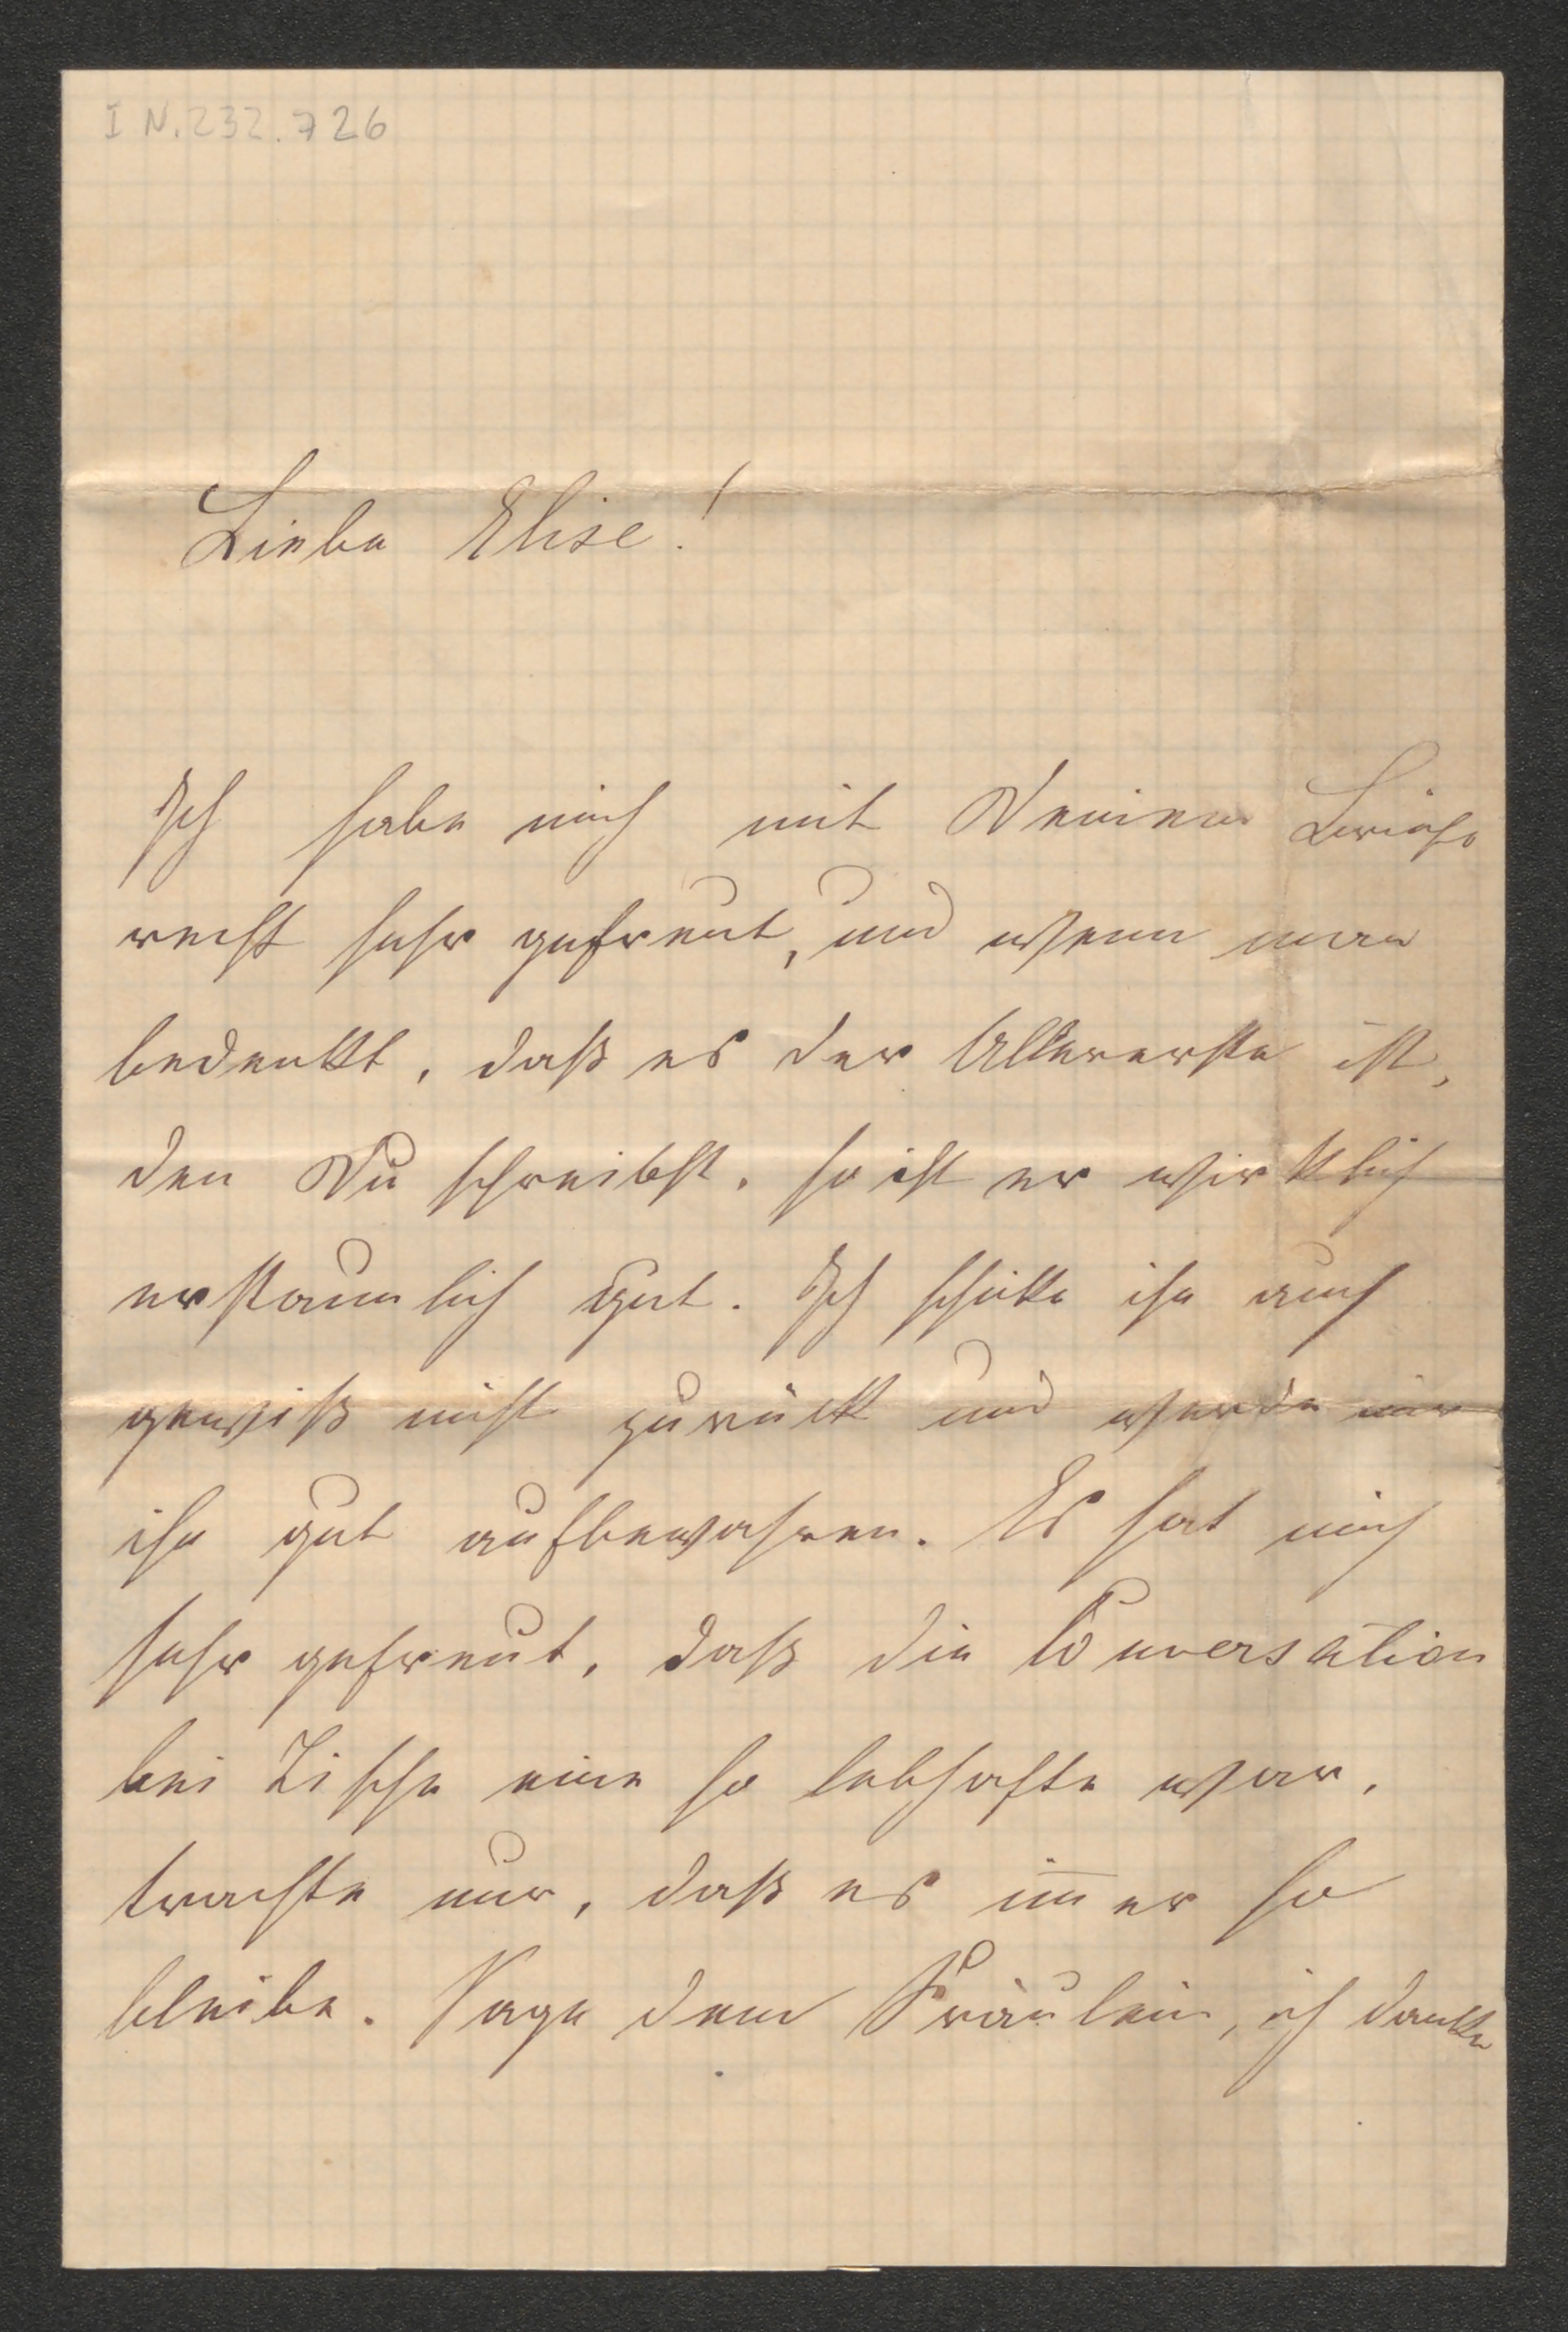 I N. 232.726
Liebe Elise!
Ich habe mich mit Deinem Briefe
recht sehr gefreut, und wenn man
bedenkt, daß es der Allererste ist,
den Du schreibst, so ist er wirklich
erstaunlich gut. Ich schicke ihn auch
gewiß nicht zurück und werde mir
ihn gut aufbewahren. Es hat mich
sehr gefreut, daß die Conversation
bei Tische eine so lebhafte war,
trachte nur, daß es im̄er so
bleibe. Sage dem Fräulein, ich danke